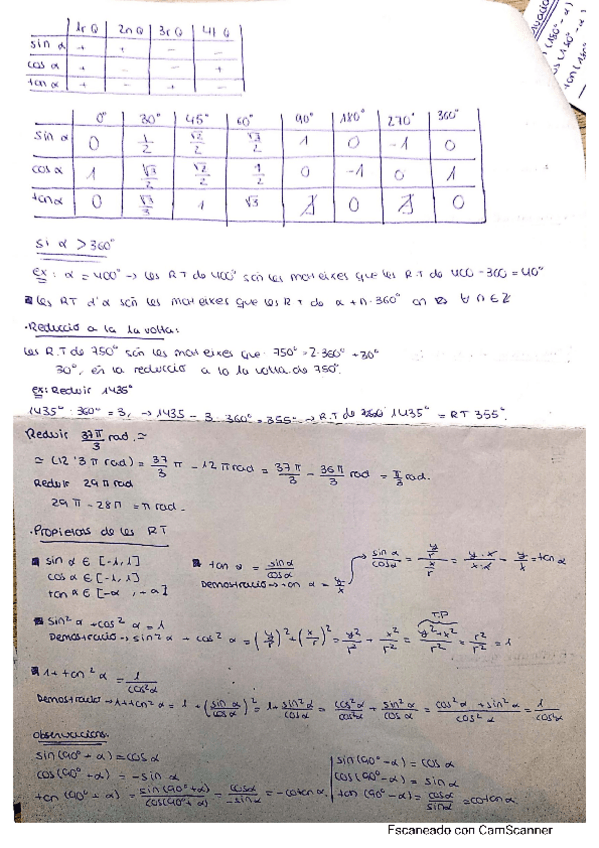 1r Q 2n Q 3r Q 4t Q
sin α + + - -
cos α + - - +
tan α + - + -
0° 30° 45° 60° 90° 180° 270° 360°
sin α 0 1/2 √2/2 √3/2 1 0 -1 0
cos α 1 √3/2 √2/2 1/2 0 -1 0 1
tan α 0 √3/3 1 √3 ∄ 0 ∄ 0
si α > 360°
ex: α = 400° → les RT de 400° són les mateixes que les R.T de 400 - 360 = 40°
les RT d'α són les mateixes que les R T de α + n·360° on ∀ n ∈ Z
·Reducció a la 1a volta:
les R.T de 750° són les mateixes que 750° - 2·360° = 30°
30°, és la reducció a la 1a volta de 750°.
ex: Reduir 1435°
1435° : 360° = 3, → 1435 - 3·360° = 355° → R.T de 1435° = RT 355°.
Reduir 37π/3 rad. ≃
≃ (12'3 π rad) = 37/3 π - 12π rad = 37π/3 - 36π/3 rad = π/3 rad.
Reduir 29π rad
29π - 28π = π rad.
·Propietats de les RT
sin α ∈ [-1,1]
cos α ∈ [-1,1]
tan α ∈ [-∞, +∞]
tan α = sin α/cos α
Demostració → tan α = y/x → sin α/cos α = (y/r)/(x/r) = y·r/x·r = y/x = tan α
sin² α + cos² α = 1
T.P
Demostració → sin² α + cos² α = (y/r)² + (x/r)² = y²/r² + x²/r² = y²+x²/r² = r²/r² = 1
1 + tan² α = 1/cos² α
Demostració → 1 + tan² α = 1 + (sin α/cos α)² = 1 + sin² α/cos α = cos² α/cos² α + sin² α/cos α = cos² α + sin² α/cos² α = 1/cos² α
Observacions:
sin (90° + α) = cos α
cos (90° + α) = -sin α
tan (90° + α) = sin (90° + α)/cos (90° + α) = cos α/-sin α = -cotan α.
sin (90° - α) = cos α
cos (90° - α) = sin α
tan (90° - α) = cos α/sin α = cotan α.
Escaneado con CamScanner